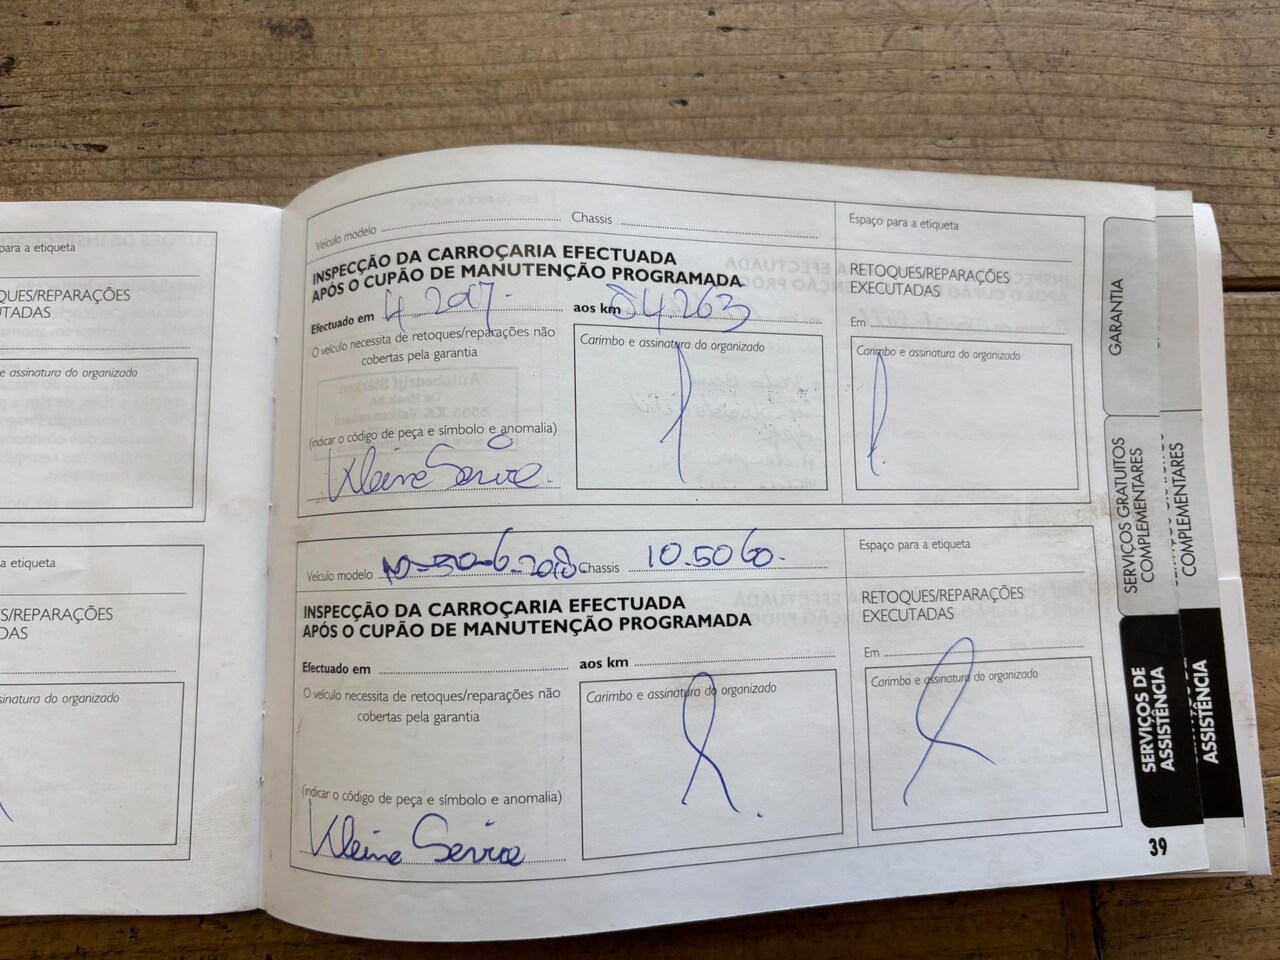 para a etiqueta
QUES/REPARAÇÕES
UTADAS
e assinatura do organizado
a etiqueta
S/REPARAÇÕES
DAS
sinatura do organizado
Veículo modelo Chassis Espaço para a etiqueta
INSPECÇÃO DA CARROÇARIA EFECTUADA
APÓS O CUPÃO DE MANUTENÇÃO PROGRAMADA
RETOQUES/REPARAÇÕES
EXECUTADAS
Efectuado em 4 2017. aos km 4.263 Em
O veículo necessita de retoques/reparações não
cobertas pela garantia
Carimbo e assinatura do organizado
Carimbo e assinatura do organizado
(indicar o código de peça e símbolo e anomalia)
Kleine Service.
Veículo modelo 6.2018 Chassis 10.5060. Espaço para a etiqueta
INSPECÇÃO DA CARROÇARIA EFECTUADA
APÓS O CUPÃO DE MANUTENÇÃO PROGRAMADA
RETOQUES/REPARAÇÕES
EXECUTADAS
Efectuado em aos km Em
O veículo necessita de retoques/reparações não
cobertas pela garantia
Carimbo e assinatura do organizado
Carimbo e assinatura do organizado
(indicar o código de peça e símbolo e anomalia)
Kleine Service
GARANTIA
SERVIÇOS GRATUITOS
COMPLEMENTARES
COMPLEMENTARES
SERVIÇOS DE
ASSISTÊNCIA
ASSISTÊNCIA
39